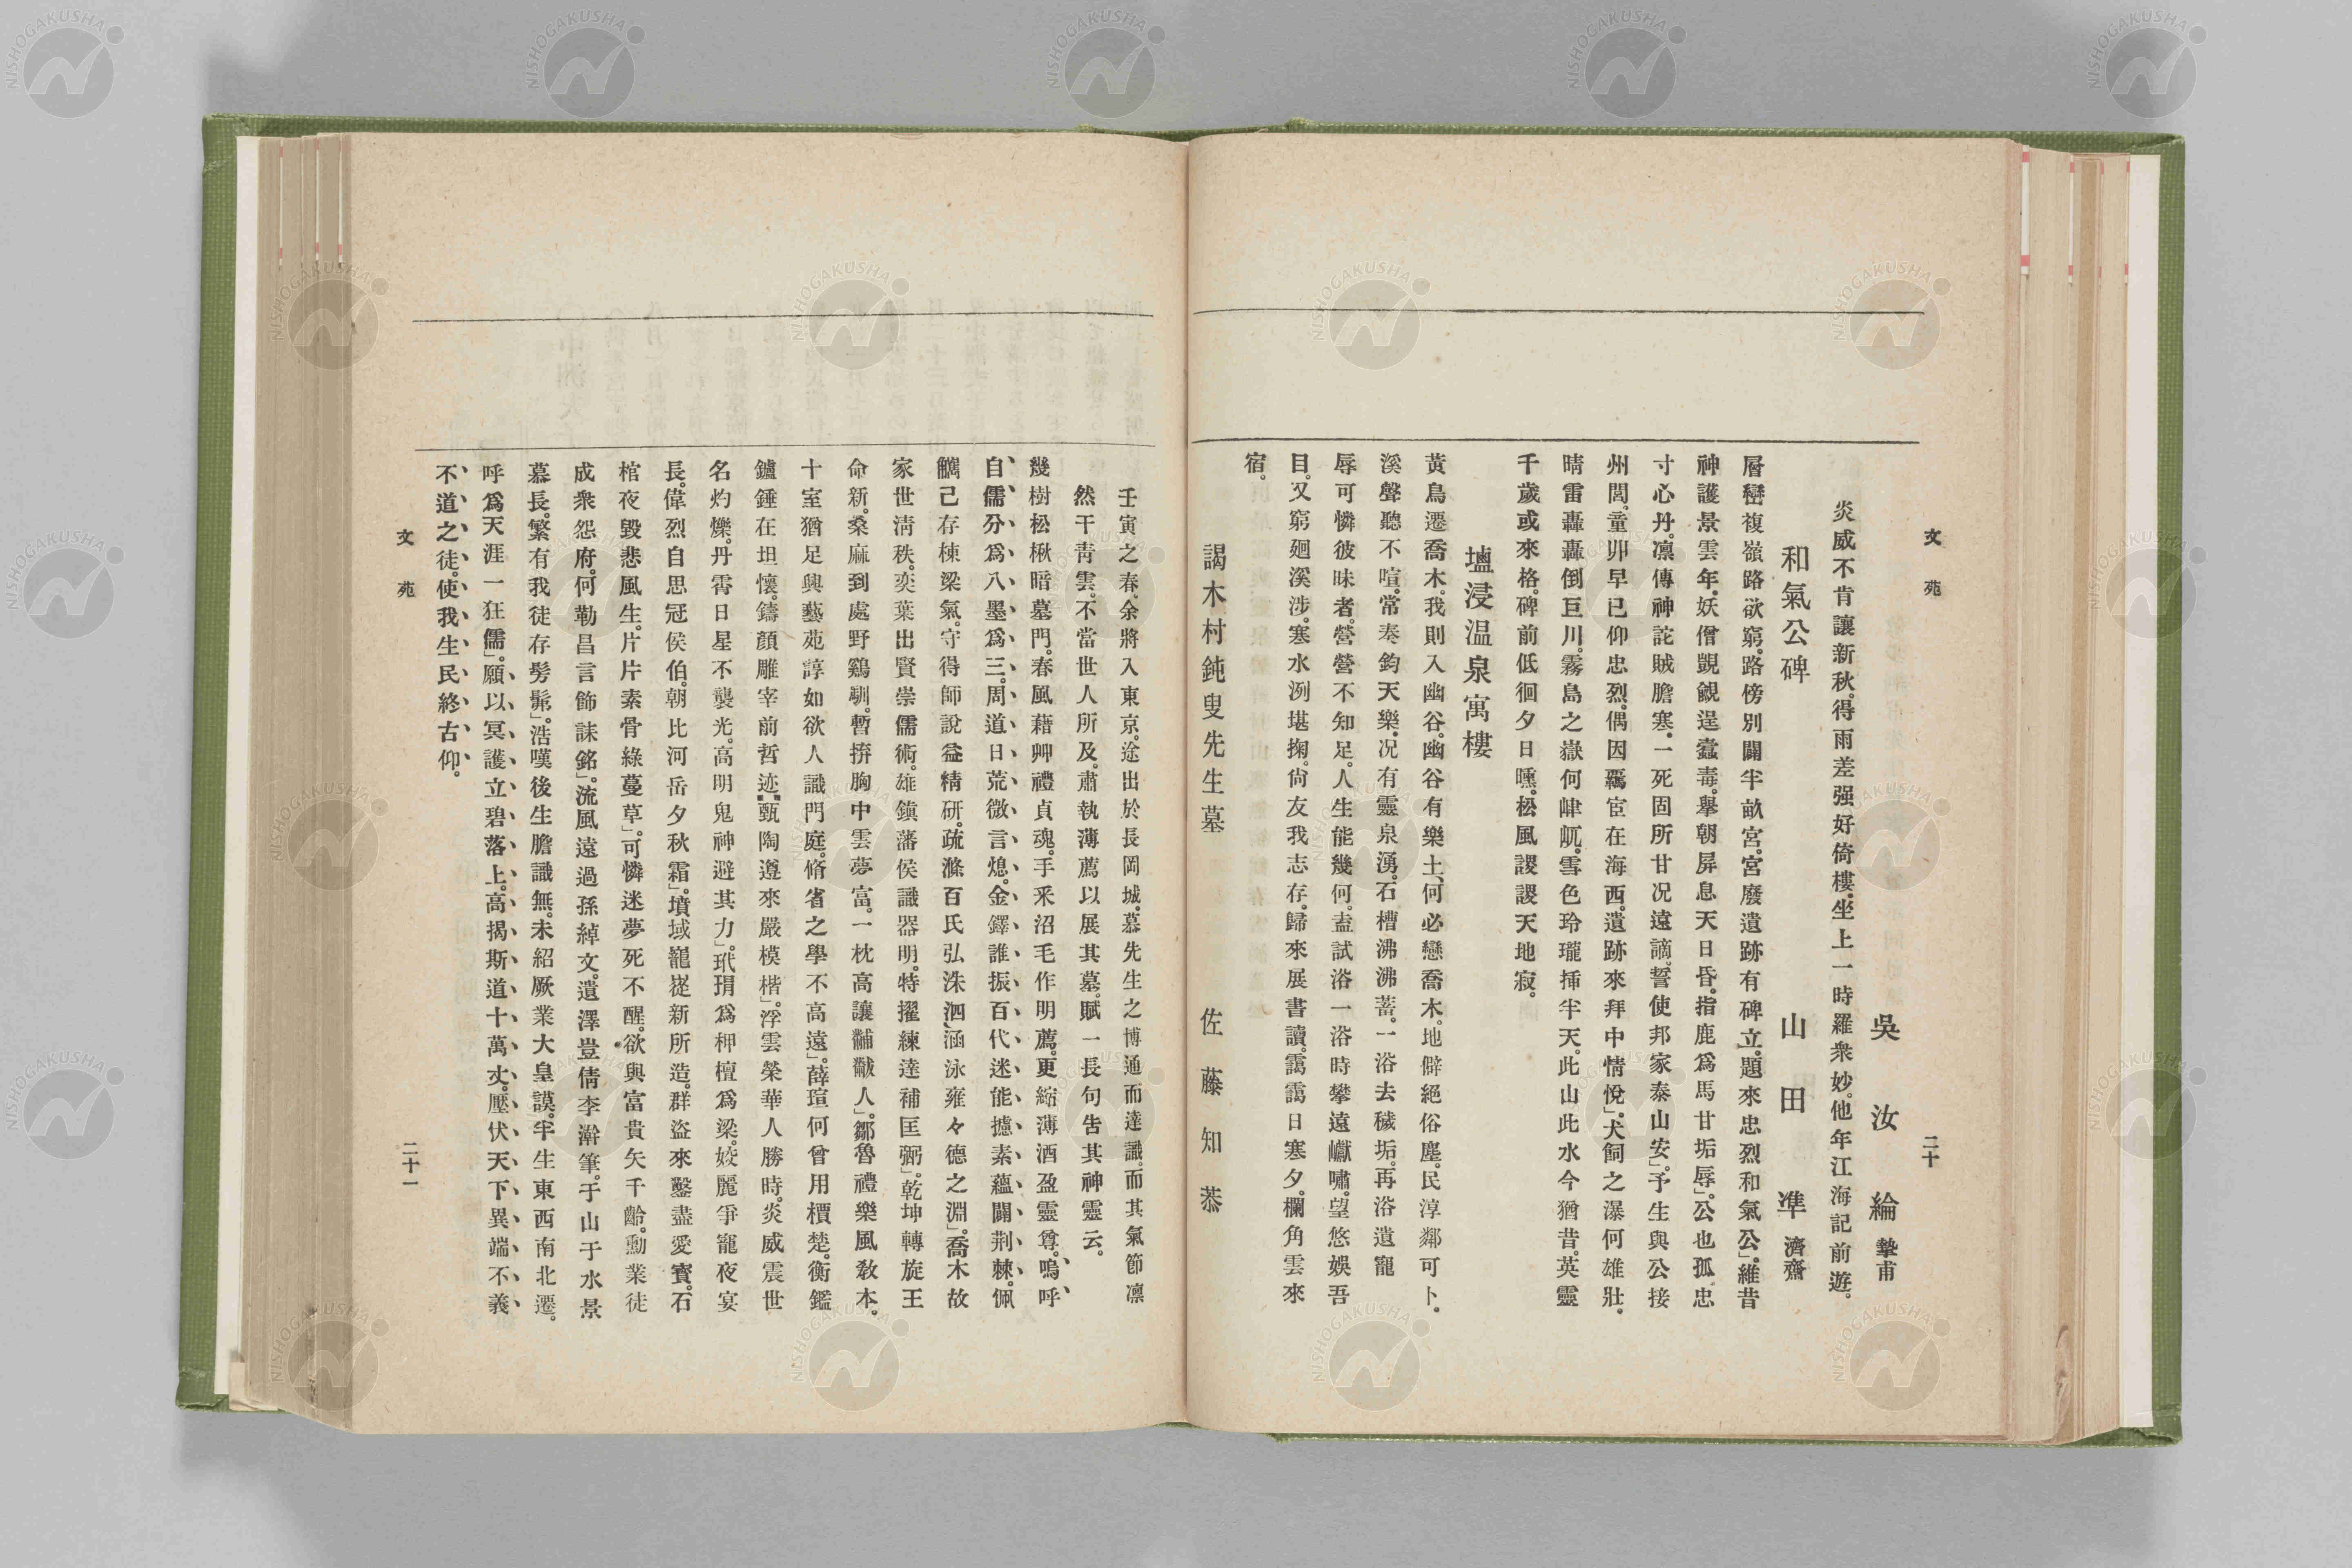 文苑
二十
吳汝綸 摯甫
炎威不肯讓新秋。得雨差强好倚樓。坐上一時羅衆妙。他年江海記前遊。
和氣公碑
山田準 濟齋
層巒複嶺路欲窮。路傍別闢半畝宮。宮廢遺跡有碑立。題來忠烈和氣公」。維昔
神護景雲年。妖僧覬覦逞蠧毒。擧朝屏息天日昏。指鹿爲馬甘垢辱」。公也孤忠
寸心丹。凛傳神詫賊膽寒。一死固所甘况遠謫。誓使邦家泰山安」。予生與公接
州閭。童丱早已仰忠烈。偶因羈宦在海西。遺跡來拜中情悅」。犬飼之瀑何雄壯。
晴雷轟轟倒巨川。霧島之嶽何嵂屼。雪色玲瓏揷半天。此山此水今猶昔。英靈
千歲或來格。碑前低徊夕日曛。松風謖謖天地寂。
塩浸温泉寓樓
黃鳥遷喬木。我則入幽谷。幽谷有樂土。何必戀喬木。地僻絕俗塵。民淳鄰可卜。
溪聲聽不喧。常奏鈞天樂。况有靈泉湧。石槽沸沸蓄。一浴去穢垢。再浴遺寵
辱可憐彼昧者。營營不知足。人生能幾何。盍試浴一浴時攀遠巘嘯。望悠娛吾
目。又窮廻溪涉。寒水冽堪掬。尙友我志存。歸來展書讀。靄靄日塞夕。欄角雲來
宿。
謁木村鈍叟先生墓
佐藤知恭
壬寅之春。余將入東京。途出於長岡城。慕先生之博通而達識。而其氣節凛
然干靑雲。不當世人所及。肅執薄薦以展其墓。賦一長句吿其神靈云。
幾樹松楸暗墓門。春風藉艸禮貞魂。手釆沼毛作明薦。更縮薄酒盈靈尊。嗚呼
自儒分爲八墨爲三。周道日荒微言熄。金鐸誰振百代迷能攄素蘊闢荆棘。佩
觿己存棟梁氣。守得師說益精研。疏滌百氏弘洙泗。涵泳雍々德之淵」。喬木故
家世淸秩。奕葉出賢崇儒術。雄鎭藩侯識器明。特擢練達補匡弼」。乾坤轉旋王
命新。桑麻到處野鷄馴。暫擠胸中雲夢富。一枕高讓黼黻人」。鄒魯禮樂風敎本。
十室猶足興藝苑諄如欲人識門庭。脩省之學不高遠」。薛瑄何曾用檟楚。衡鑑
鑪錘在坦懷。鑄顏雕宰前哲迹。甄陶遵來嚴模楷」。浮雲榮華人勝時。炎威震世
名灼爍。丹霄日星不襲光。高明鬼神避其力」。玳瑁爲柙檀爲梁。姣麗爭寵夜宴
長。偉烈自思冠侯伯。朝比河岳夕秋霜」。墳域巃嵷新所造。群盜來鑿盡愛寶。石
棺夜毀悲風生。片片素骨綠蔓草」。可憐迷夢死不醒。欲與富貴矢千齡。勳業徒
成衆怨府。何勒昌言飾誄銘」。流風遠過孫綽文。遺澤豈倩李澣筆。于山于水景
慕長。繁有我徒存髣髴」。浩嘆後生膽識無。未紹厥業大皇謨。半生東西南北遷。
呼爲天涯一狂儒」。願以冥護立碧落上。高揭斯道十萬丈。壓伏天下異端不義
不道之徒。使我生民終古仰。
文苑
二十一